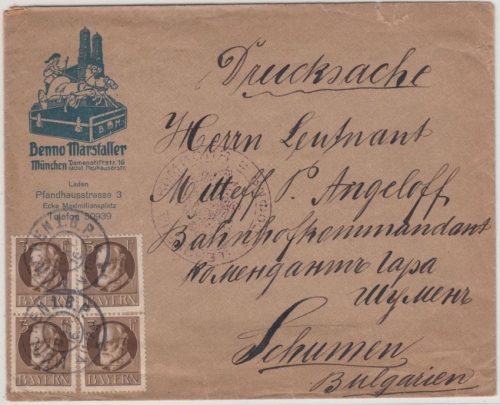 B.M
Benno Marstaller
München Damenstiftstr. 16
nächst Neuhauserstr.
Laden
Pfandhausstrasse 3
Ecke Maximiliansplatz
Telefon 50939
Drucksache
Herrn Leutnant
Mitteff P. Angeloff
Bahnhofkommandant
комендантъ гара
Шуменъ
Schumen
Bulgarien
3 Pf 3 Pf
BAYERN BAYERN
3 Pf 3 Pf
BAYERN BAYERN